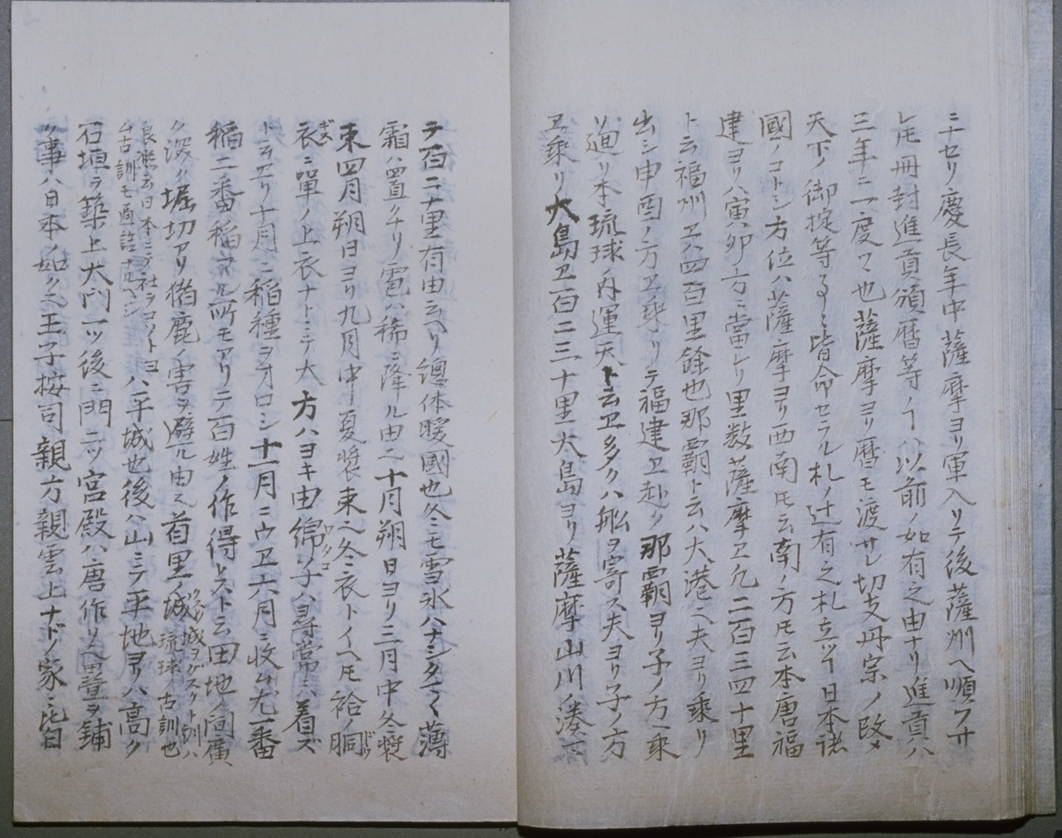 ニナセリ慶長年中薩摩ヨリ軍入リテ後薩州ヘ順フサ
レ𪜈冊封進貢頒暦等ノヿハ以前ノ如有之由ナリ進貢ハ
三年ニ一度ツヽ也薩摩ヨリ暦モ渡サレ切支丹宗ノ改メ
天下ノ御掟等守ラシ皆命セラル札ノ辻有之札立ツヿ日本諸
國ノコトシ方位ハ薩摩ヨリ西南𪜈云南ノ方𪜈云本唐福
建ヨリハ寅卯方ニ當レリ里数薩摩ヱ凡二百三四十里
ト云福州ヱハ四百里餘也那覇ト云ハ大港ニ夫ヨリ乗リ
出シ申酉ノ方ヱ乗リテ福建ヱ赴ク那覇ヨリ子ノ方ヱ乗
リ廻リ本琉球ノ内運天ト云ヱ多クハ舩ヲ寄ス夫ヨリ子ノ方
ヱ乗リ大島ヱ百二三十里大島ヨリ薩摩山川ノ湊マ
テ百二十里有由云ヘリ總体暖國也冬ニモ雪氷ハナシタマ〱薄
霜ハ置クナリ雹ハ稀ニ降ル由之十月朔日ヨリ三月中冬装
束四月朔日ヨリ九月中夏装束之冬衣トイヘ𪜈袷ノ胴
衣ニ單ノ上衣ナトニテ大方ハヨキ由綿子ハ尋常ニハ着ズ
ト云ヱリ十月ニ稲種ヲオロシ十一月ニウヱ六月ニ收ム尤一番
稲二番稲アル所モアリテ百姓ノ作得トスト云田地ノ間廣
ク深ク堀切アリ猪鹿ノ害ヲ避ル由之首里城
城ヲグスクト訓ハ
琉球ノ古訓也
良熙云日本ニテ社ヲコソトヨ
ム古訓モ通音ナルヘシ
ハ平城也後ハ山ニテ平地ヨリハ高ク
石垣ヲ築上大門一ツ後ニ門二ツ宮殿ハ唐作リ之畳ヲ鋪
ク事ハ日本ノ如ク之王子按司親方親雲上ナドノ家ニ皆